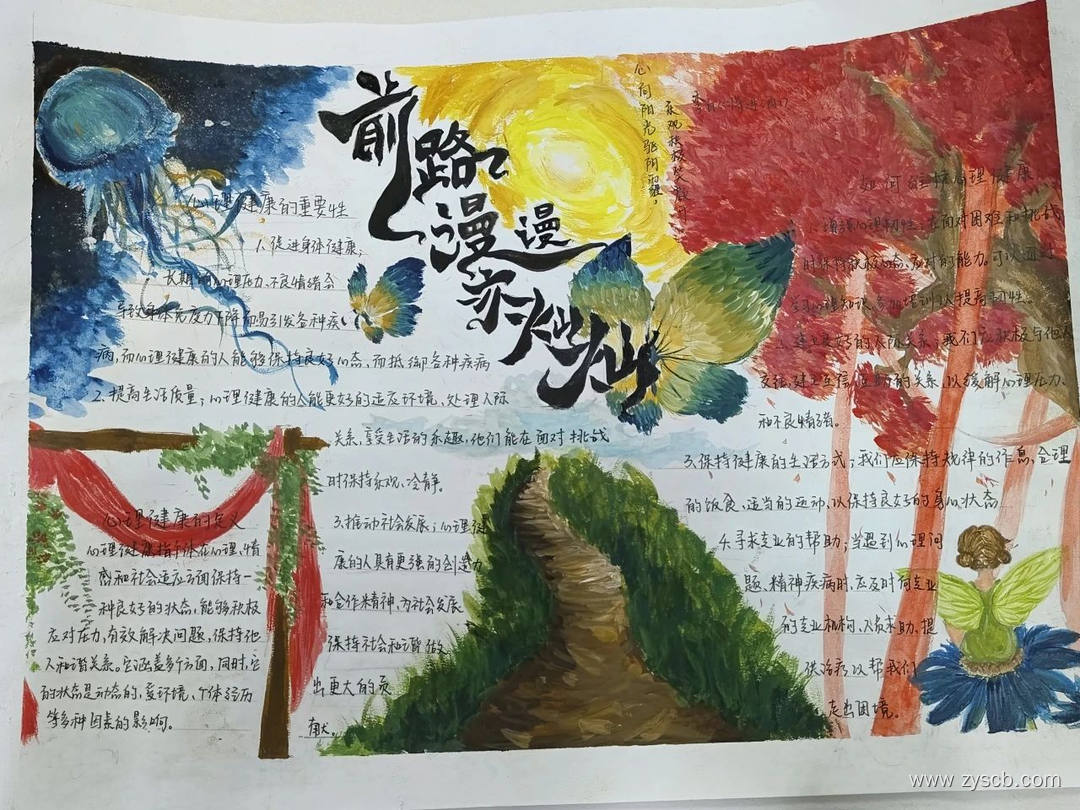 前路
漫漫
亦灿灿
心向阳光驱阴霾，
乐观积极
心理健康的重要性
1.促进身体健康；
长期的心理压力、不良情绪会
导致身体免疫力下降而易引发各种疾
病，而心理健康的人能够保持良好心态，而抵御各种疾病
2.提高生活质量；心理健康的人能更好的适应环境、处理人际
关系、享受生活的乐趣，他们能在面对挑战
时保持乐观、冷静。
3.推动社会发展；心理健
康的人具有更强的创造力
和合作精神，为社会发展
保持社会和谐做
出更大的贡
献。
心理健康的定义
心理健康指个体在心理、情
感和社会适应方面保持一
种良好的状态，能够积极
应对压力，有效解决问题，保持他
人和谐关系。它涵盖多个方面，同时，它
的状态是动态的，受环境、个体经历
等多种因素的影响。
如何 心理健康
1.增强心理韧性；在面对困难和挑战
时保持积极心态，应对的能力。可以通过
学习心理知识、参加培训以提高韧性。
2.建立良好的人际关系，我们应积极与他人
交往，建立互信、互助的关系，以缓解心理压力、
和不良情绪。
3.保持健康的生活方式；我们应保持规律的作息、合理
的饮食、适当的运动，以保持良好的身心状态
4.寻求专业的帮助；当遇到心理问
题、精神疾病时，应及时向专业
的专业机构、人员求助，提
供治疗以帮我们
走出困境。
www.zyscb.com